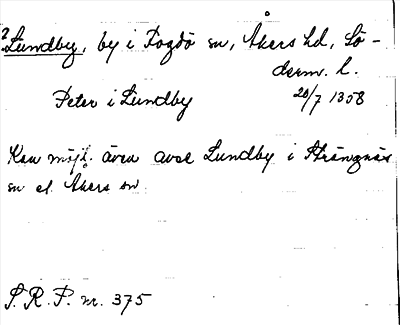 ?Lundby, by i Fogdö sn, Åkers hd, Sö-
derm. l.
Peter i Lundby 20/7 1358
Kan möjl. även avse Lundby i Strängnäs
sn el. Åkers sn.
S.R.P. nr. 375